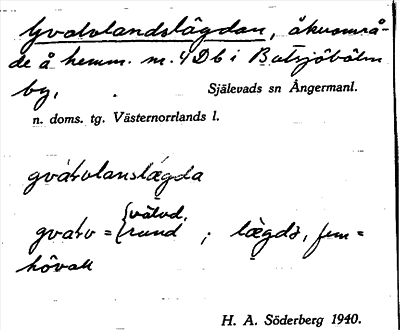 Gvatvlandslägdan, åkerområ-
de å hemm. nr. 4 Db i Butsjöbälens
by,
Själevads sn Ångermanl.
n. doms. tg. Västernorrlands l.
gvátvlanslǽgda
gvatv = { vätvd.
rund ; lægdə, fem =
hövall
H. A. Söderberg 1940.